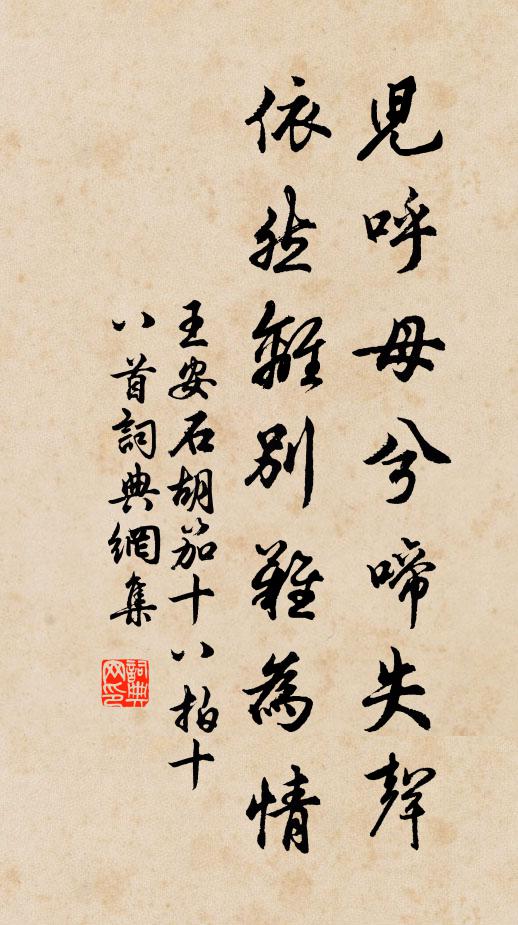 兒呼母兮啼失聲
依然離別難為情
王安石胡笳十八拍十
八首詞典網集
詞典网印